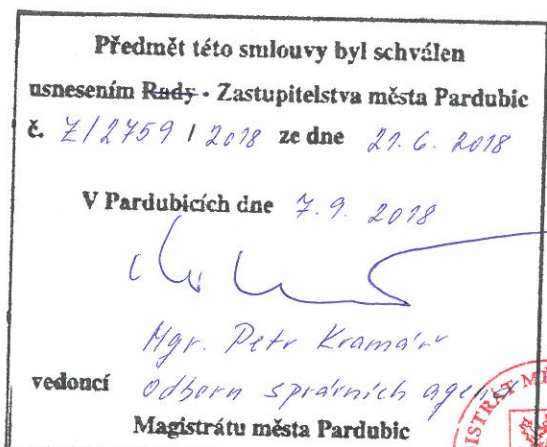 Předmět této smlouvy byl schválen
usnesením Rady - Zastupitelstva města Pardubic
č. Z/2759 / 2018 ze dne 21. 6. 2018
V Pardubicích dne 7. 9. 2018
Mgr. Petr Kramář
vedoucí Odboru správních agend
Magistrátu města Pardubic